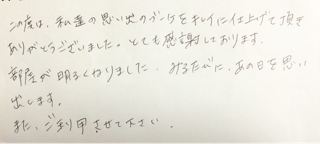 この度は、私達の思い出のブーケをキレイに仕上げて頂き
ありがとうございました。とても感謝しております。
部屋が明るくなりました。みるたびに、あの日を思い
出します。
また、ご利用させて下さい。